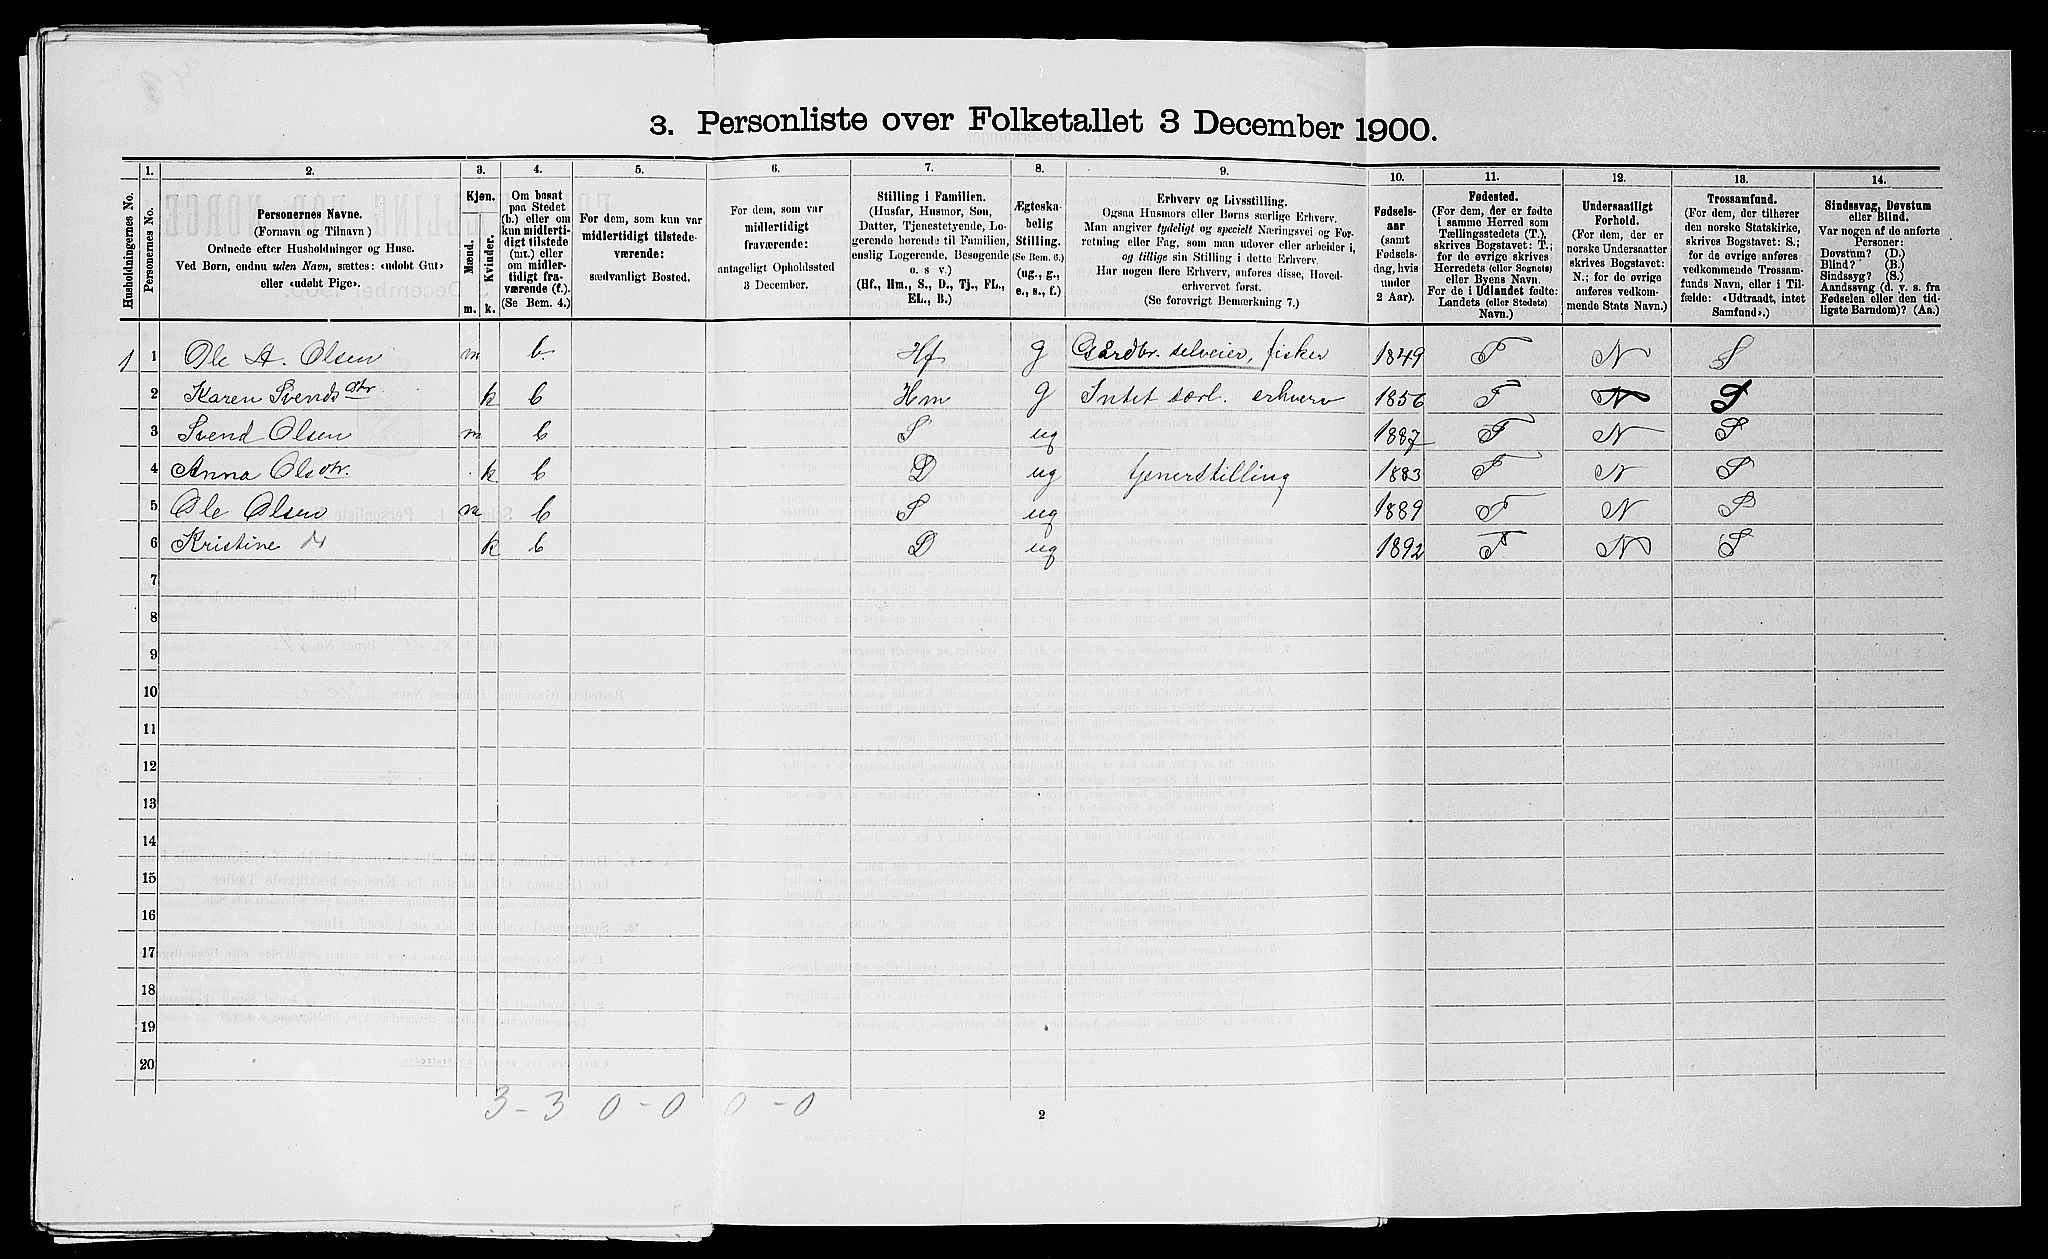 3. Personliste over Folketallet 3 December 1900.
Husholdningernes No.
1.
Personernes No.
2.
Personernes Navne.
(Fornavn og Tilnavn)
Ordnede efter Husholdninger og Huse.
Ved Børn, endnu uden Navn, sættes: «udøbt Gut»
eller «udøbt Pige».
3.
Kjøn.
Mænd.
Kvinder.
m.
k.
4.
Om bosat
paa Stedet
(b.) eller om
kun midlerti-
digt tilstede
(mt.) eller
om midler-
tidigt fra-
værende (f.).
(Se Bem. 4.)
5.
For dem, som kun var
midlertidigt tilstede-
værende:
sædvanligt Bosted.
6.
For dem, som var
midlertidigt
fraværende:
antageligt Opholdssted
3 December.
7.
Stilling i Familien.
(Husfar, Husmor, Søn,
Datter, Tjenestetyende, Lo-
gerende hørende til Familien,
enslig Logerende, Besøgende
o. s v.)
(Hf., Hm., S., D., Tj., FL.,
EL., B.)
8.
Ægteska-
belig
Stilling.
(Se Bem. 6.)
(ug., g.,
e., s., f.)
9.
Erhverv og Livsstilling.
Ogsaa Husmors eller Børns særlige Erhverv.
Man angiver tydeligt og specielt Næringsvei og For-
retning eller Fag, som man udøver eller arbeider i,
og tillige sin Stilling i dette Erhverv.
Har nogen flere Erhverv, anføres disse, Hoved-
erhvervet først.
(Se forøvrigt Bemærkning 7.)
10.
Fødsels-
aar
(samt
Fødsels-
dag, hvis
under
2 Aar).
11.
Fødested.
(For dem, der er fødte
i samme Herred som
Tællingsstedets (T.),
skrives Bogstavet: T.;
for de øvrige skrives
Herredets (eller Sognets)
eller Byens Navn.
For de i Udlandet fødte:
Landets (eller Stedets)
Navn.)
12.
Undersaatligt
Forhold.
(For de
norske Undersaatter
skrives Bogstavet:
N.; for de øvrige
anføres vedkom-
mende Stats Navn.)
13.
Trossamfund.
(For dem, der tilhører
den norske Statskirke,
skrives Bogstavet: S.;
for de øvrige anføres
vedkommende Trossam-
funds Navn, eller i Til-
fælde: «Udtraadt, intet
Samfund».)
14.
Sindssvag, Døvstum
eller Blind.
Var nogen af de anførte
Personer:
Døvstum? (D.)
Blind? (B.)
Sindssyg? (S.)
Aandssvag (d. v. s. fra
Fødselen eller den tid-
ligste Barndom)? (Aa.)
1 1 Ole A. Olsen m b. Hf g Gårdbr. selveier, fisker 1849 T N S
2 Karen Svendsdtr k b Hm g Intet særl. erhverv 1856 T N S
3 Svend Olsen m b S ug 1887 T N S
4 Anna Olsdtr. k b D ug tjenerstilling 1883 T N S
5 Ole Olsen m b S ug 1889 T N S
6 Kristine d k b D ug 1892 T N S
7
8
9
10
11
12
13
14
15
16
17
18
19
20
3 - 3 0 - 0 0 - 0
2